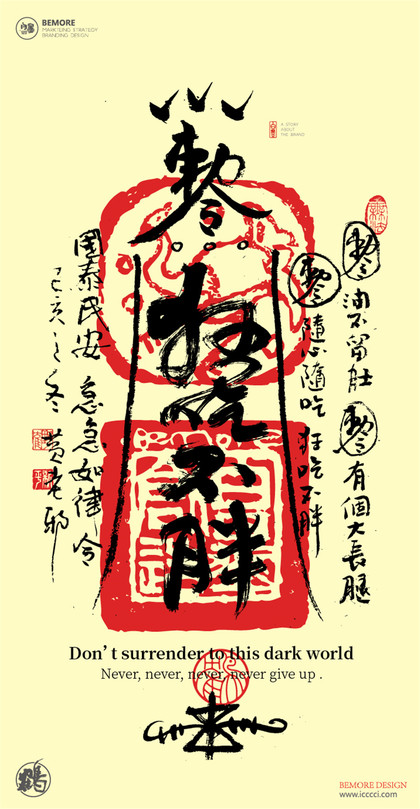 BEMORE
MARKETING STRATEGY
BRANDING DESIGN
A STORY
ABOUT
THE BRAND
狂吃不胖
油不留肚
有個大長腿
隨心隨吃
狂吃不胖
國泰民安 急急如律令
己亥之冬 黃老邪
Don't surrender to this dark world
Never, never, never, never give up .
鶴
BEMORE DESIGN
www.icccci.com